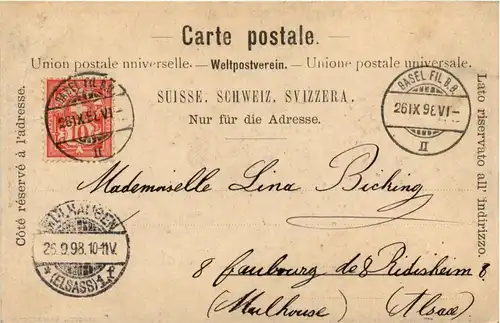 Carte postale.
Union postale universelle. — Weltpostverein. — Unione postale universale.
SUISSE. SCHWEIZ. SVIZZERA.
Nur für die Adresse.
Côté réservé à l'adresse.
Lato riservato all' indirizzo.
BASEL FIL.B.B.
26 IX 98 VI-
II
10
A
BASEL FIL.B.B.
26 IX 98 VI-
II
Mademoiselle Lina Biching
MÜLHAUSEN
26.9.98.10-11V.
*(ELSASS)1
8 faubourg de Ridisheim 8
(Mulhouse) (Alsace)